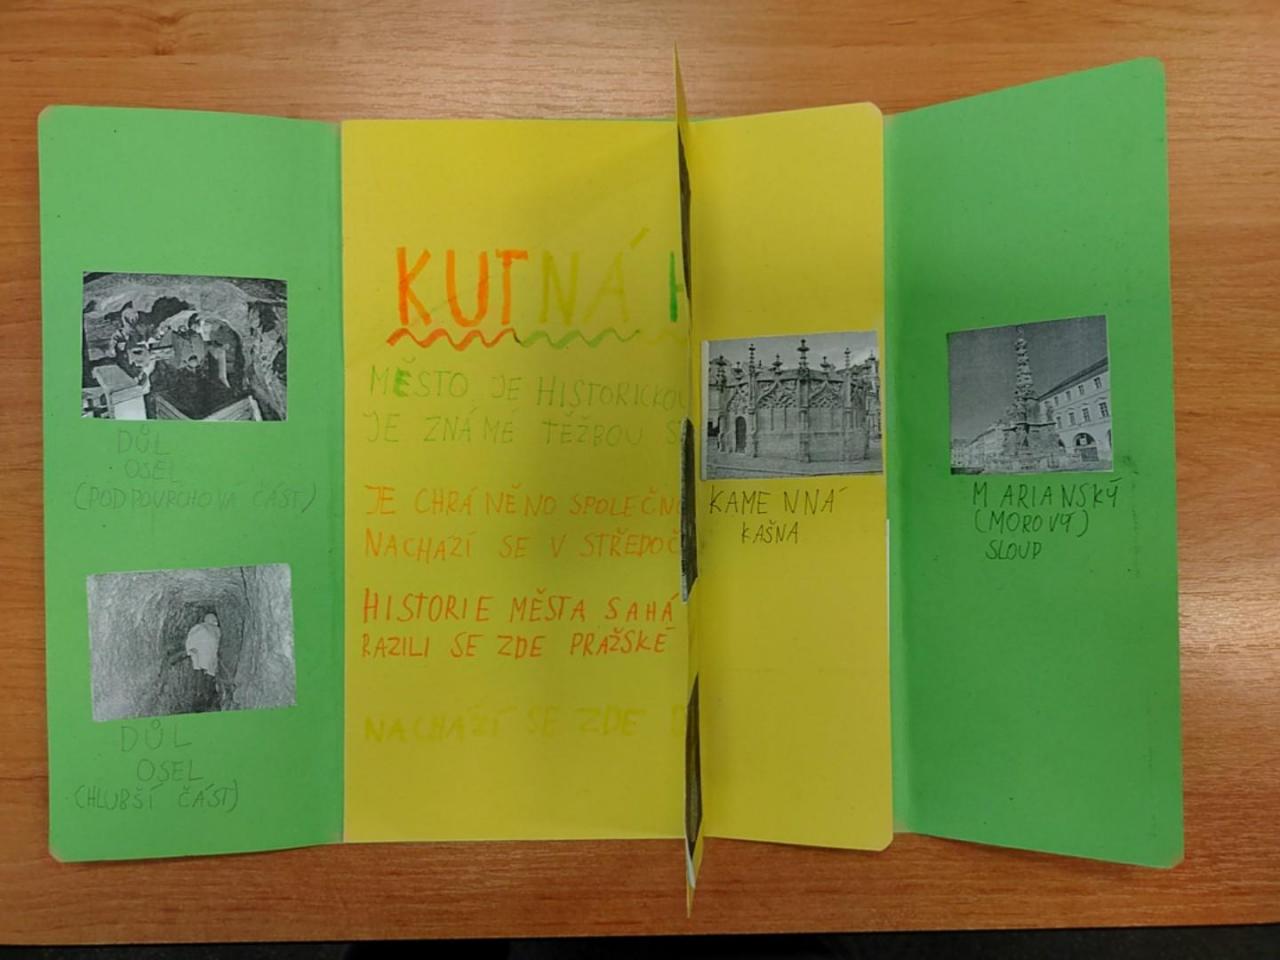 DŮL
OSEL
(PODPOVRCHOVA ČÁST)
DŮL
OSEL
(HLUBŠÍ ČÁST)
KUTNÁ H
MĚSTO JE HISTORICKOU
JE ZNÁMÉ TĚŽBOU S
JE CHRÁNĚNO SPOLEČN
NACHAZÍ SE V STŘEDOČ
HISTORIE MĚSTA SAHÁ
RAZILI SE ZDE PRAŽSKÉ
NACHÁZÍ SE ZDE
KAMENNÁ
KAŠNA
MARIANSKÝ
(MOROVÝ)
SLOUP